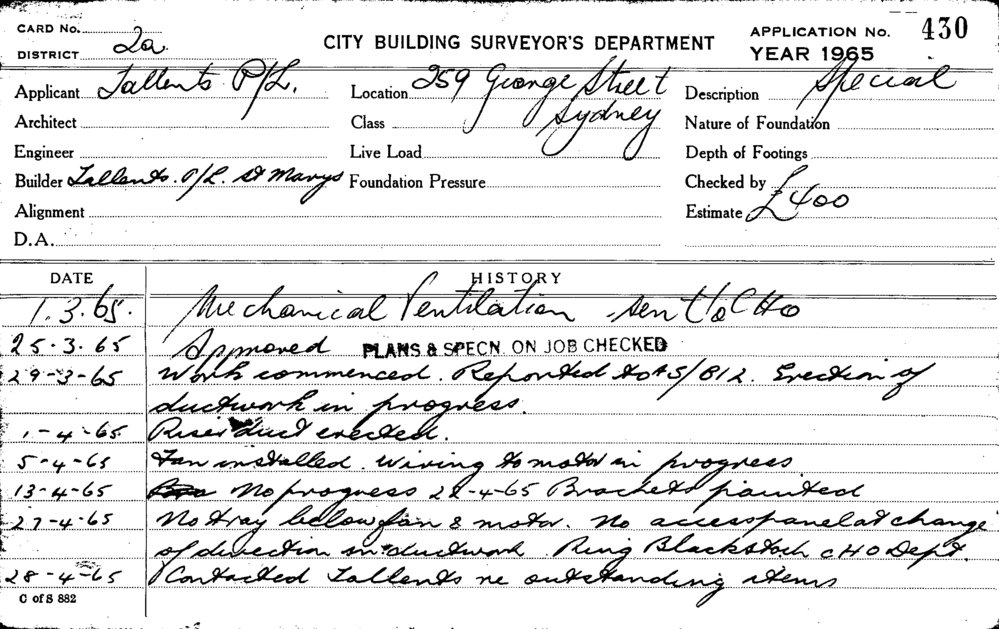 CARD No.
DISTRICT 2a
CITY BUILDING SURVEYOR'S DEPARTMENT
APPLICATION No. 430
YEAR 1965
Applicant Tallents P/L.
Location 259 George Street
Description Special
Architect
Class Sydney
Nature of Foundation
Engineer
Live Load
Depth of Footings
Builder Tallents. P/L. St Marys
Foundation Pressure
Checked by
Alignment
Estimate £400
D.A.
DATE HISTORY
1.3.65. Mechanical Ventilation sent to CHO
25.3.65 Approved PLANS & SPECN. ON JOB CHECKED
29-3-65 Work commenced. Reported to AS/BI2. Erection of
ductwork in progress.
1-4-65 Riser duct erected.
5-4-65 Fan installed. Wiring to motor in progress
13-4-65 No progress 22-4-65 Brackets painted
27-4-65 No tray below fan & motor. No access panel at change
of direction in ductwork. Ring Blackstock CHO Dept.
28-4-65 Contacted Tallents re outstanding items
C of S 882